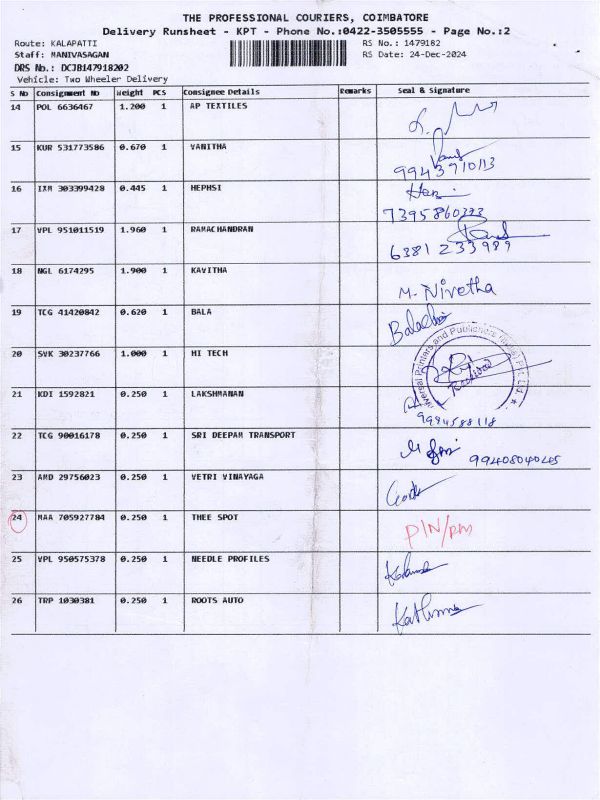 THE PROFESSIONAL COURIERS, COIMBATORE
Delivery Runsheet - KPT - Phone No.:0422-3505555 - Page No.:2
Route: KALAPATTI RS No.: 1479182
Staff: MANIVASAGAN RS Date: 24-Dec-2024
DRS No.: DCJB147918202
Vehicle: Two Wheeler Delivery
S No Consignment No Weight PCS Consignee Details Remarks Seal & Signature
14 POL 6636467 1.200 1 AP TEXTILES
15 KUR 531773586 0.670 1 VANITHA
9943710113
16 IXM 303399428 0.445 1 HEPHSI
7395860393
17 VPL 951011519 1.960 1 RAMACHANDRAN
6381233989
18 NGL 6174295 1.900 1 KAVITHA
M. Nivetha
19 TCG 41420842 0.620 1 BALA
20 SVK 30237766 1.000 1 HI TECH
21 KDI 1592821 0.250 1 LAKSHMANAN
9994588118
22 TCG 90016178 0.250 1 SRI DEEPAM TRANSPORT
23 AMD 29756023 0.250 1 VETRI VINAYAGA
24 MAA 705927784 0.250 1 THEE SPOT
PIN/
25 VPL 950575378 0.250 1 NEEDLE PROFILES
26 TRP 1030381 0.250 1 ROOTS AUTO